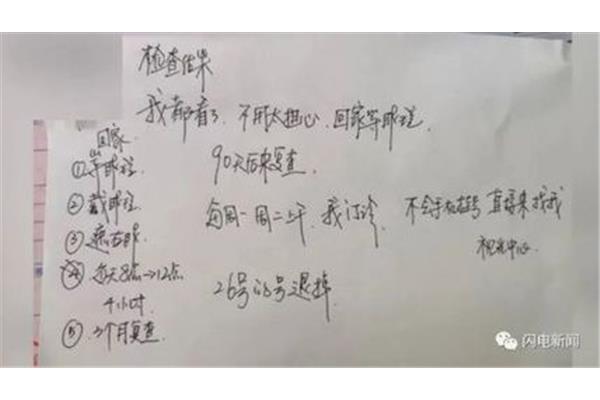 检查结果
我都看了、不用太担心、回家等球镜、
90天后来复查、
每周一周二上午、我门诊、不会手机挂号 直接来找我
视光中心
26号的号退掉、
回家
①等球镜
②戴球镜
③遮右眼
④每天8点→12点
4小时
⑤、3个月复查、
闪电新闻